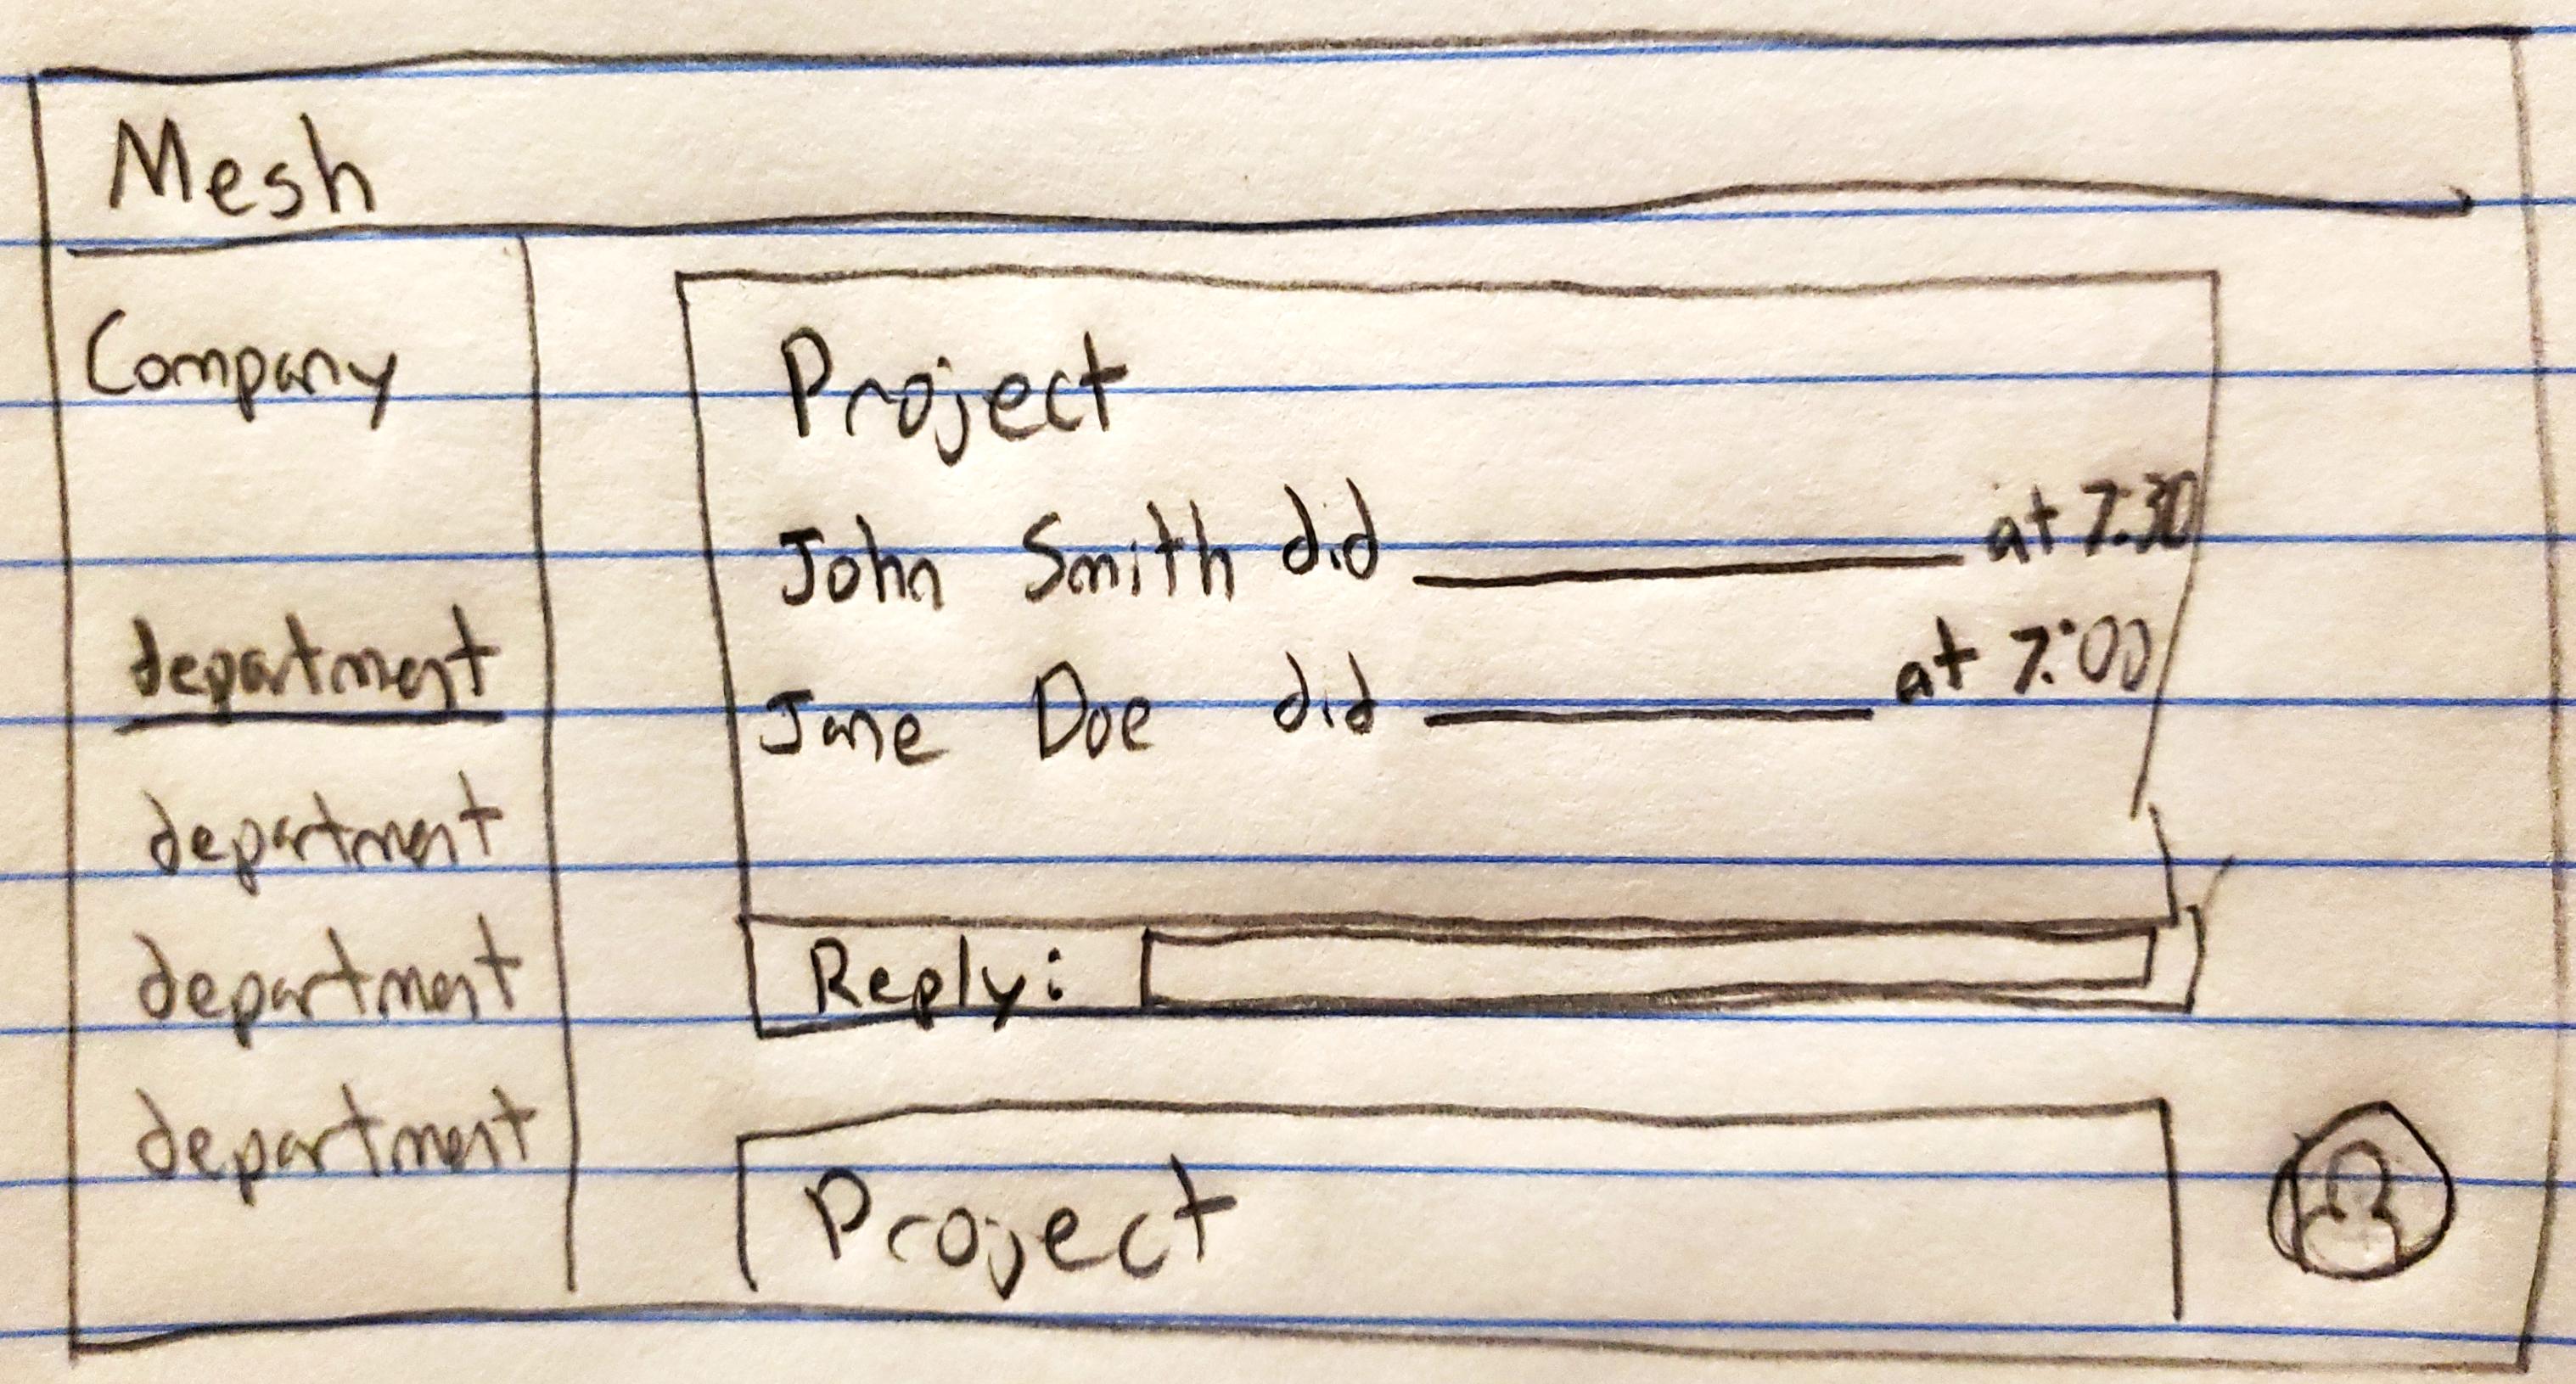 Mesh
Company
department
department
department
department
Project
John Smith did ________ at 7:30
Jane Doe did ________ at 7:00
Reply:
Project